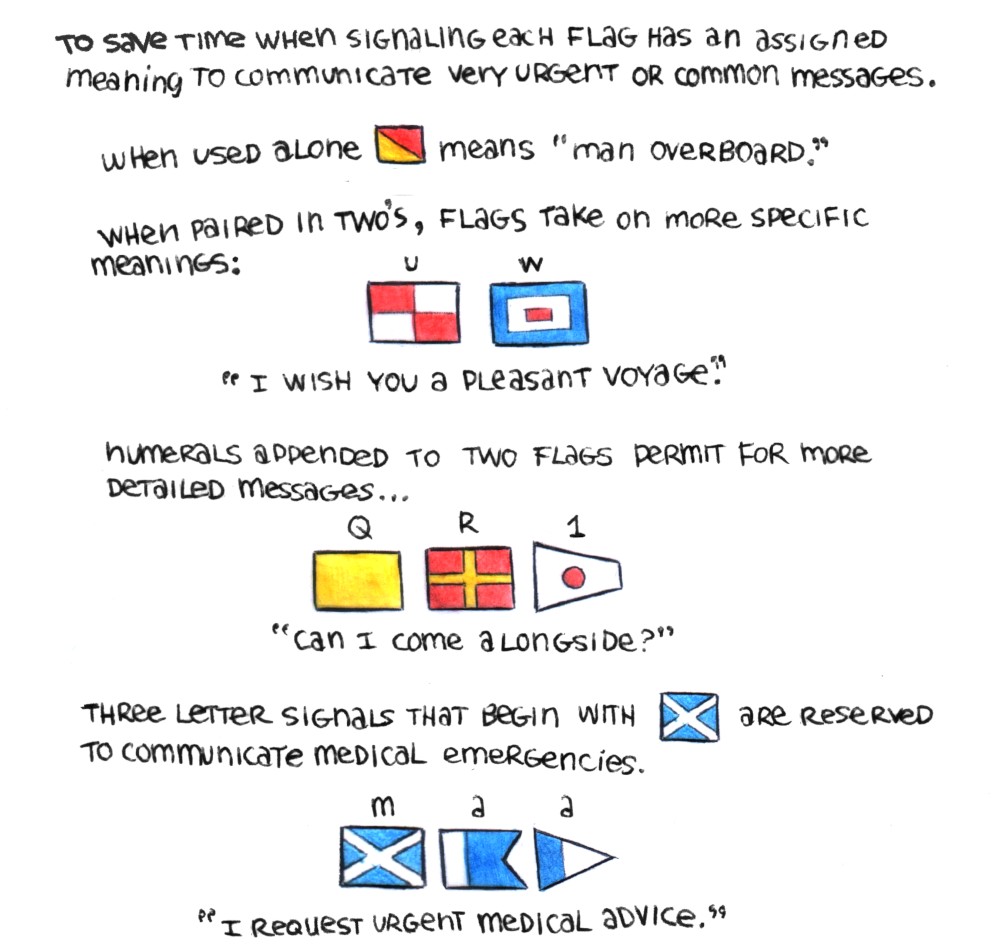 TO SAVE TIME WHEN SIGNALING EACH FLAG HAS AN ASSIGNED
MEANING TO COMMUNICATE VERY URGENT OR COMMON MESSAGES.
WHEN USED ALONE MEANS "MAN OVERBOARD."
WHEN PAIRED IN TWO'S, FLAGS TAKE ON MORE SPECIFIC
MEANINGS:
U W
"I WISH YOU A PLEASANT VOYAGE."
NUMERALS APPENDED TO TWO FLAGS PERMIT FOR MORE
DETAILED MESSAGES...
Q R 1
"CAN I COME ALONGSIDE?"
THREE LETTER SIGNALS THAT BEGIN WITH ARE RESERVED
TO COMMUNICATE MEDICAL EMERGENCIES.
M A A
"I REQUEST URGENT MEDICAL ADVICE."